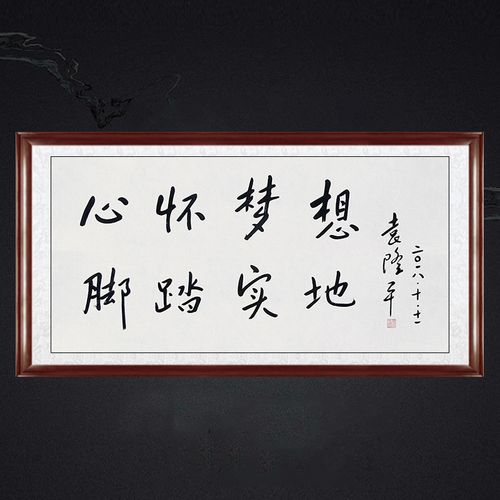 心怀梦想
脚踏实地
袁隆平
二〇一八·十·十一